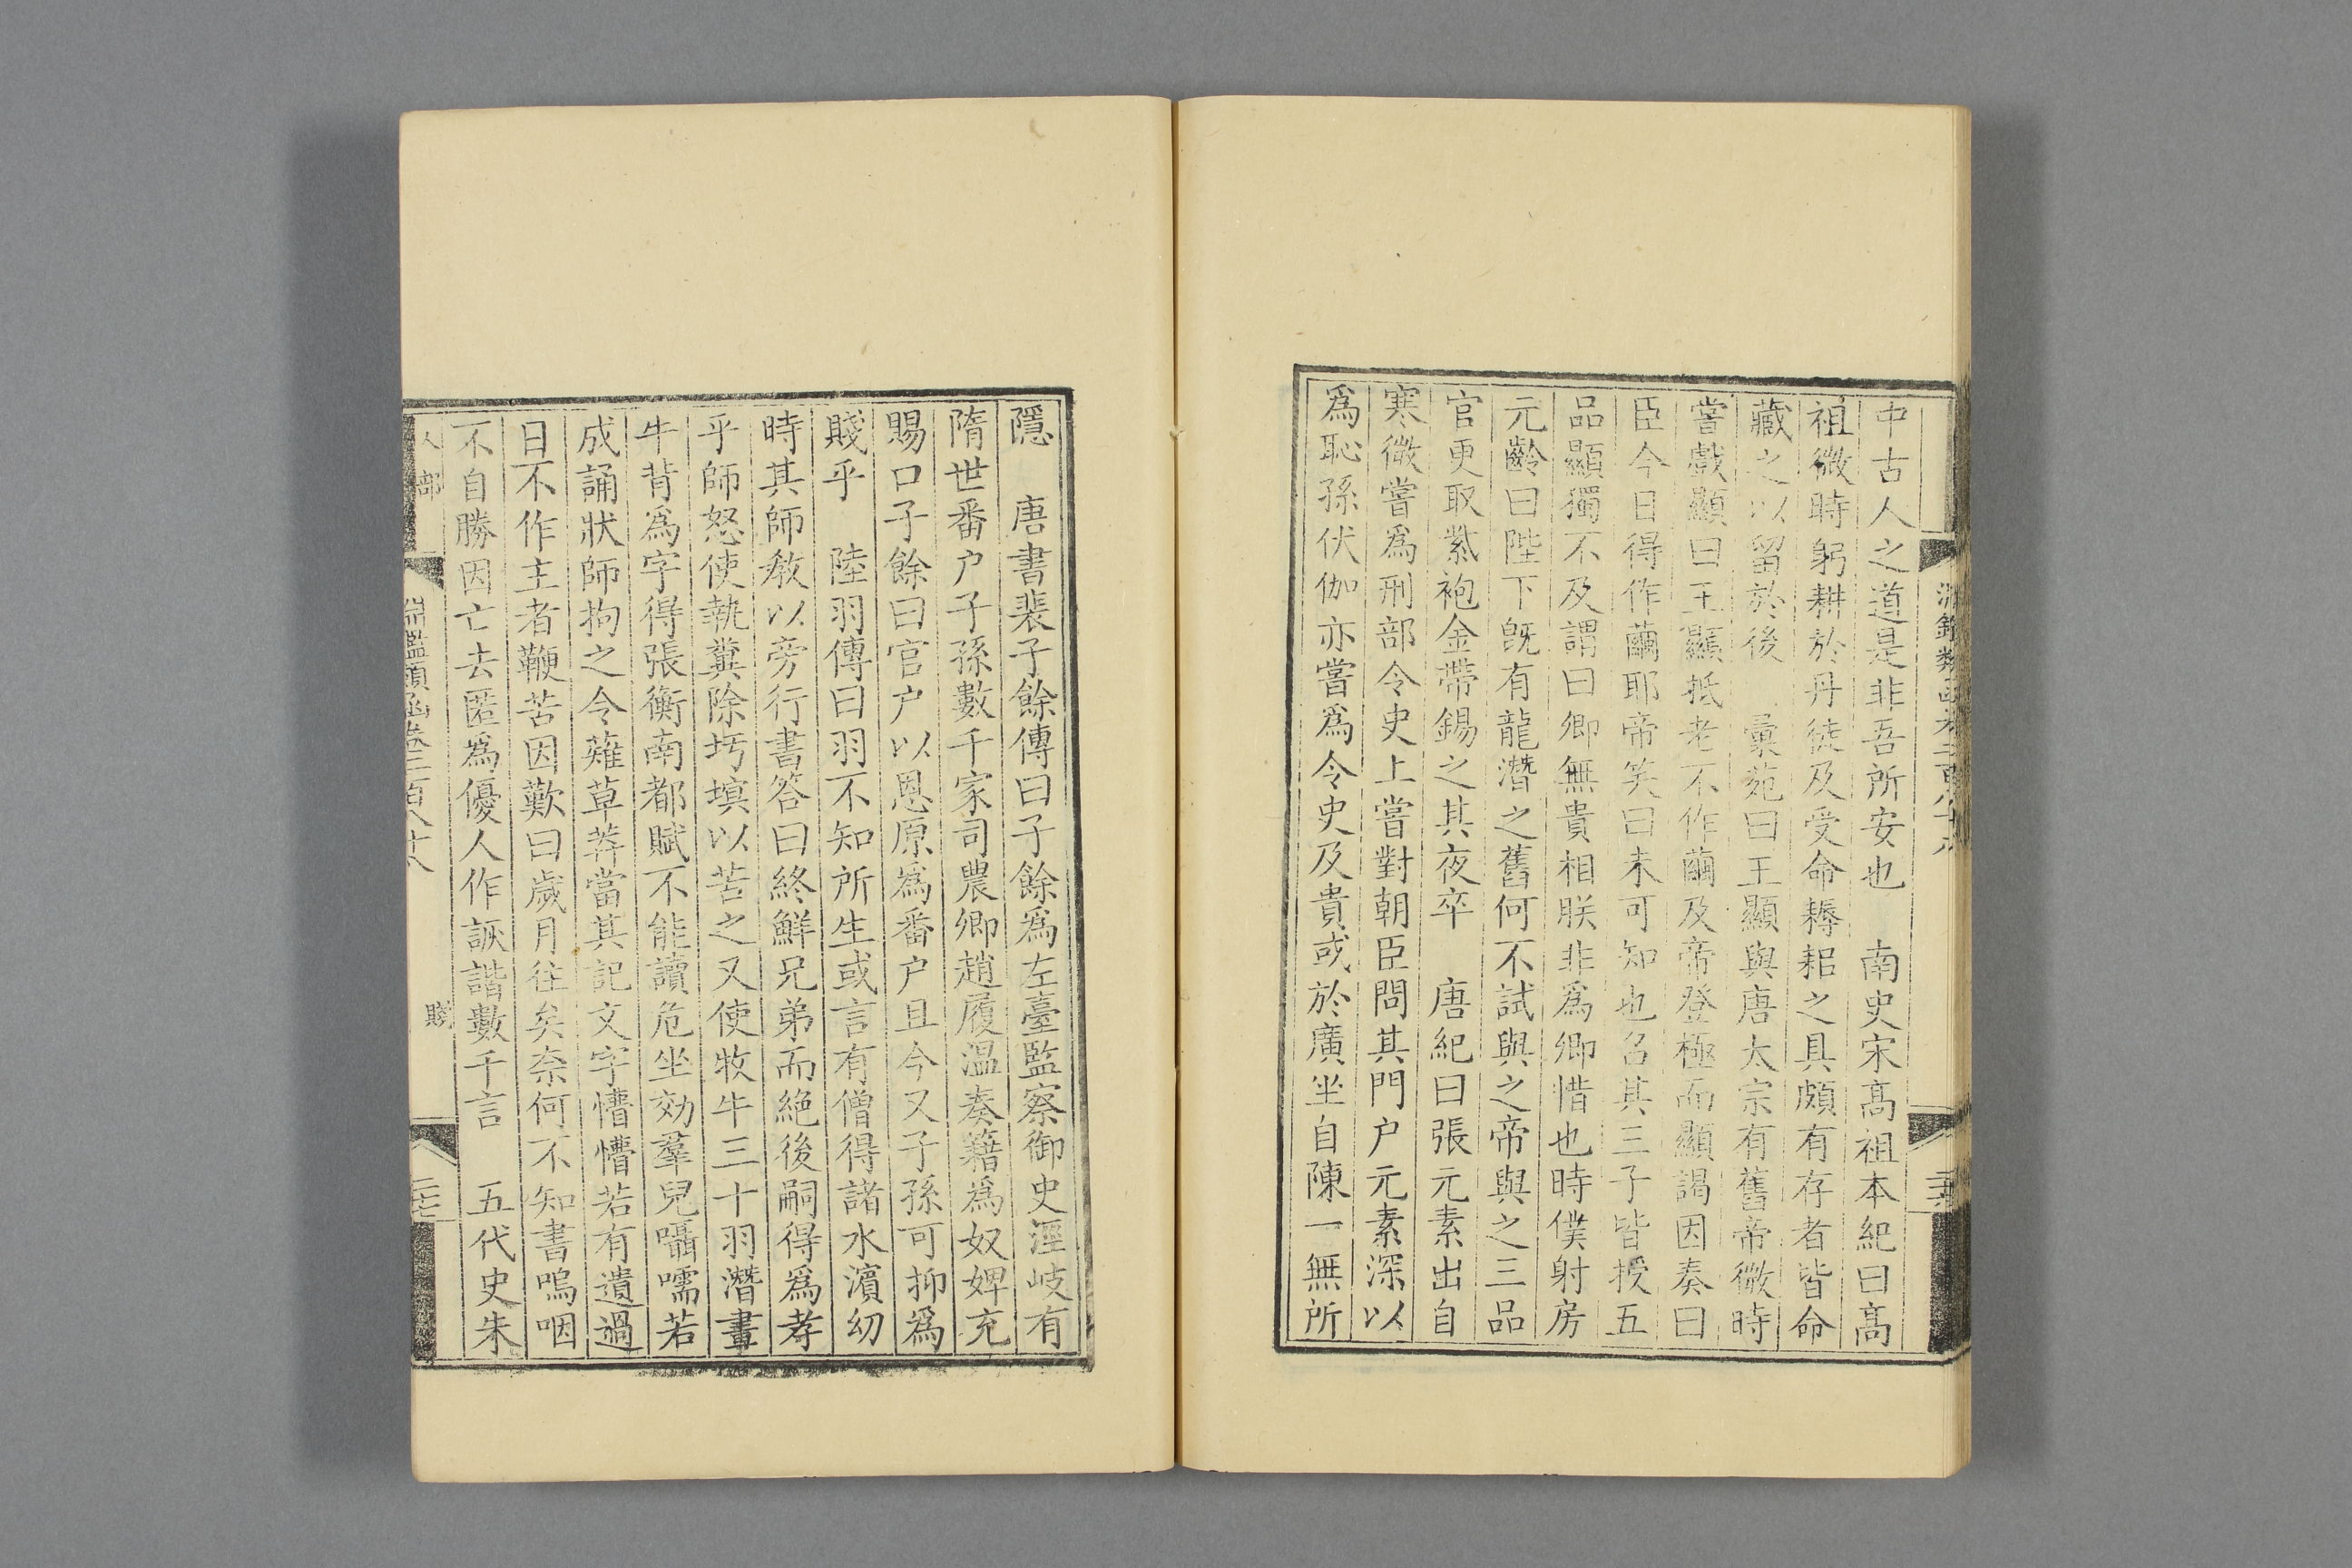 中古人之道是非吾所安也　南史宋高祖本紀曰高
祖微時躬耕於丹徒及受命耨耜之具頗有存者皆命
藏之以留於後　彙苑曰王顯與唐太宗有舊帝微時
嘗戲顯曰王顯抵老不作繭及帝登極而顯謁因奏曰
臣今日得作繭耶帝笑曰未可知也召其三子皆授五
品顯獨不及謂曰卿無貴相朕非爲卿惜也時僕射房
元齡曰陛下旣有龍潛之舊何不試與之帝與之三品
官更取紫袍金帶錫之其夜卒　唐紀曰張元素出自
寒微嘗爲刑部令史上嘗對朝臣問其門户元素深以
爲恥孫伏伽亦嘗爲令史及貴或於廣坐自陳一無所
隱　唐書裴子餘傳曰子餘爲左臺監察御史涇岐有
隋世番户子孫數千家司農卿趙履溫奏籍爲奴婢充
賜口子餘曰官户以恩原爲番户且今又子孫可抑爲
賤乎　陸羽傳曰羽不知所生或言有僧得諸水濵幼
時其師教以旁行書答曰終鮮兄弟而絶後嗣得爲孝
乎師怒使執糞除圬塓以苦之又使牧牛三十羽潛畫
牛背爲字得張衡南都賦不能讀危坐效羣兒囁嚅若
成誦狀師拘之令薙草莽當其記文字懵懵若有遺過
日不作主者鞭苦因歎曰歲月往矣奈何不知書嗚咽
不自勝因亡去匿爲優人作詼諧數千言　五代史朱
人部
淵鑑類函卷二百八十八
賤
二七